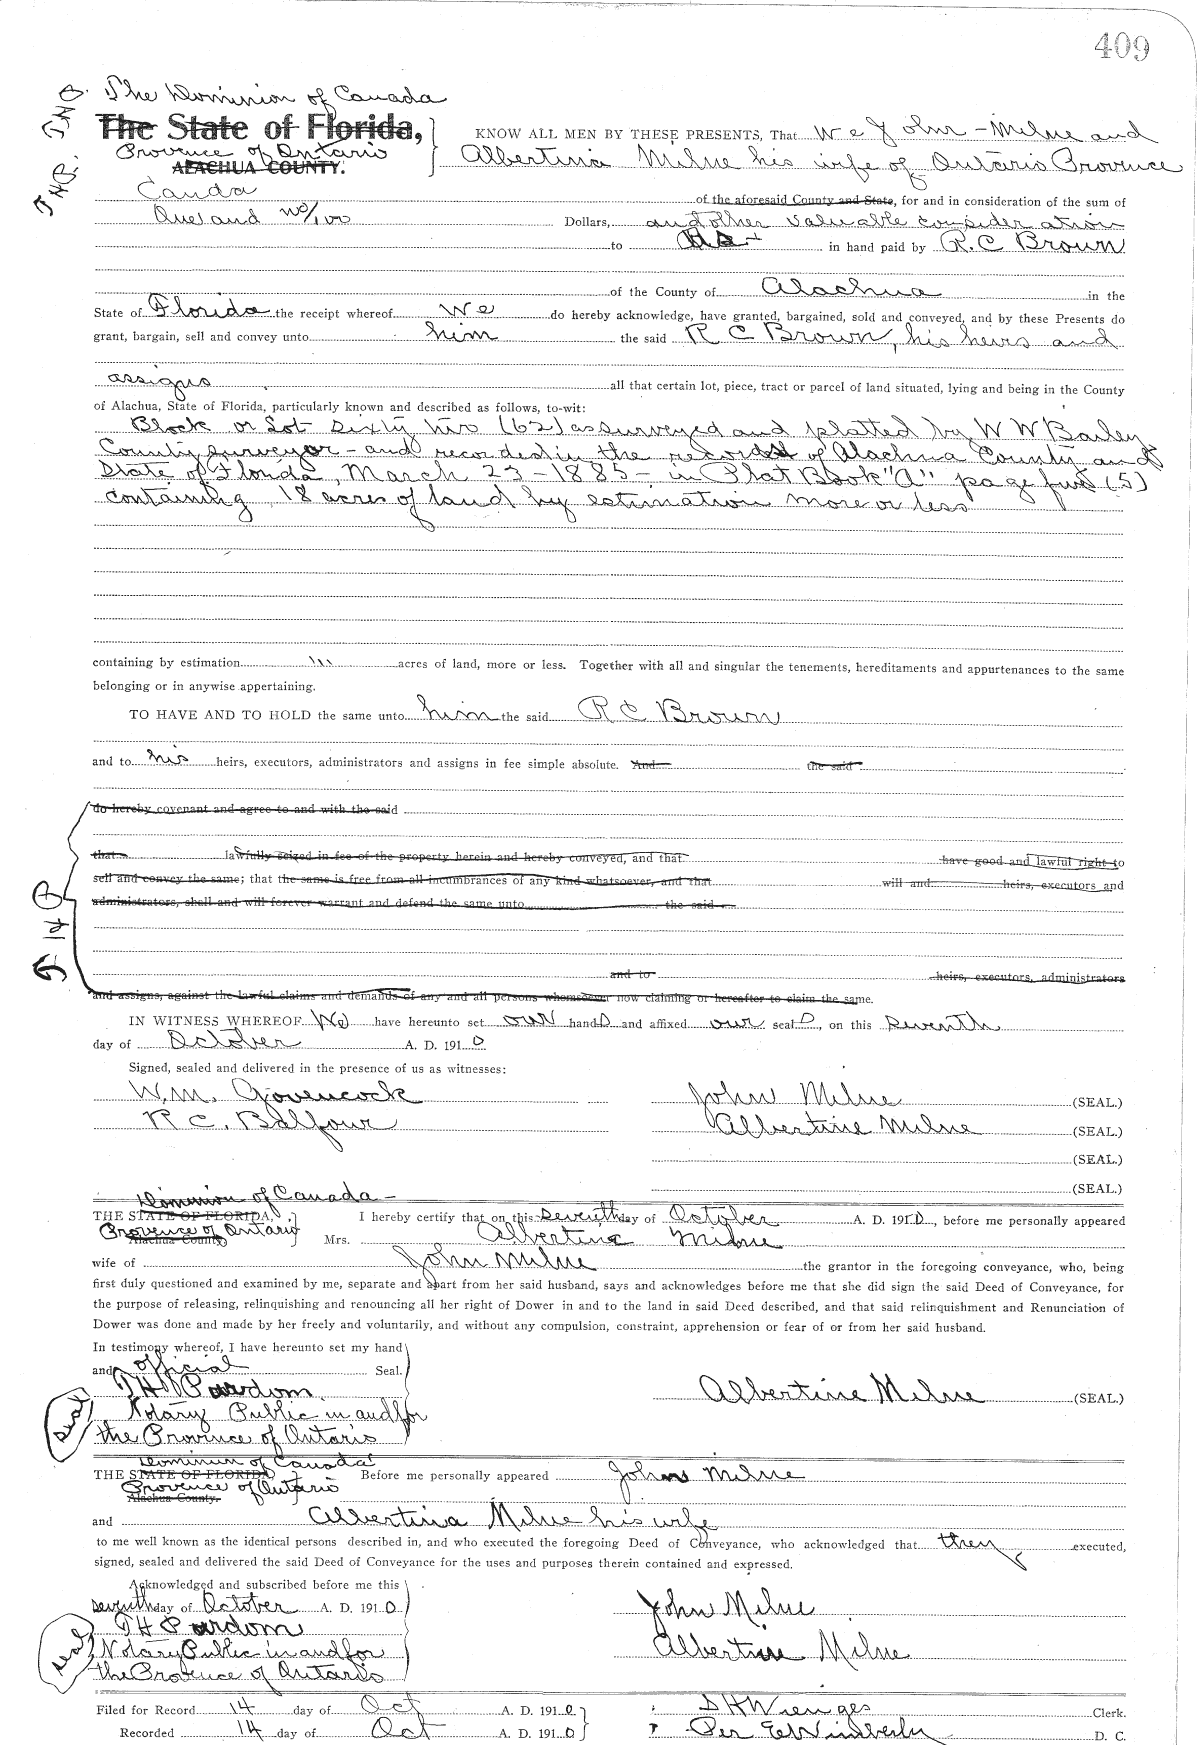 409
The Dominion of Canada
The State of Florida,
Province of Ontario
ALACHUA COUNTY.
KNOW ALL MEN BY THESE PRESENTS, That We John Milne and
Albertina Milne his wife of Ontario Province
Canda
of the aforesaid County and State, for and in consideration of the sum of
One and no/100 Dollars, and other valuable consideration
to in hand paid by R. C Brown
of the County of Alachua in the
State of Florida the receipt whereof We do hereby acknowledge, have granted, bargained, sold and conveyed, and by these Presents do
grant, bargain, sell and convey unto him the said R C Brown, his heirs and
assigns all that certain lot, piece, tract or parcel of land situated, lying and being in the County
of Alachua, State of Florida, particularly known and described as follows, to-wit:
Block or Lot sixty two (62) as surveyed and platted by W W Bailey
County surveyor - and recorded in the records of Alachua County and
State of Florida, March 23 - 1885 - in Plat Book "A" page five (5)
containing 18 acres of land by estimation more or less
containing by estimation acres of land, more or less. Together with all and singular the tenements, hereditaments and appurtenances to the same
belonging or in anywise appertaining.
TO HAVE AND TO HOLD the same unto him the said R C Brown
and to his heirs, executors, administrators and assigns in fee simple absolute. And the said
do hereby covenant and agree to and with the said
that lawfully seized in fee of the property herein and hereby conveyed, and that have good and lawful right to
sell and convey the same; that the same is free from all incumbrances of any kind whatsoever, and that will and heirs, executors and
administrators, shall and will forever warrant and defend the same unto the said
and to heirs, executors, administrators
and assigns, against the lawful claims and demands of any and all persons whomsoever now claiming or hereafter to claim the same.
IN WITNESS WHEREOF We have hereunto set our hands and affixed our seals, on this seventh
day of October A. D. 1910
Signed, sealed and delivered in the presence of us as witnesses:
W.M. Govencock John Milne (SEAL.)
R C. Balfour Albertine Milne (SEAL.)
(SEAL.)
(SEAL.)
Dominion of Canada -
THE STATE OF FLORIDA, I hereby certify that on this seventh day of October A. D. 1910, before me personally appeared
Province of Ontario
Alachua County Mrs. Albertina Milne
wife of John Milne the grantor in the foregoing conveyance, who, being
first duly questioned and examined by me, separate and apart from her said husband, says and acknowledges before me that she did sign the said Deed of Conveyance, for
the purpose of releasing, relinquishing and renouncing all her right of Dower in and to the land in said Deed described, and that said relinquishment and Renunciation of
Dower was done and made by her freely and voluntarily, and without any compulsion, constraint, apprehension or fear of or from her said husband.
In testimony whereof, I have hereunto set my hand
and official Seal.
T H Purdom Albertine Milne (SEAL.)
Seal
Notary Public in and for
the Province of Ontario
Dominion of Canada
THE STATE OF FLORIDA Before me personally appeared John Milne
Province of Ontario
Alachua County.
and Albertina Milne his wife
to me well known as the identical persons described in, and who executed the foregoing Deed of Conveyance, who acknowledged that they executed,
signed, sealed and delivered the said Deed of Conveyance for the uses and purposes therein contained and expressed.
Acknowledged and subscribed before me this
seventh day of October A. D. 1910 John Milne
T H Purdom
Seal
Notary Public in and for Albertine Milne
the Province of Ontario
Filed for Record 14 day of Oct A. D. 1910 S H Wienges Clerk.
Recorded 14 day of Oct A. D. 1910 Per E Wimberly D. C.